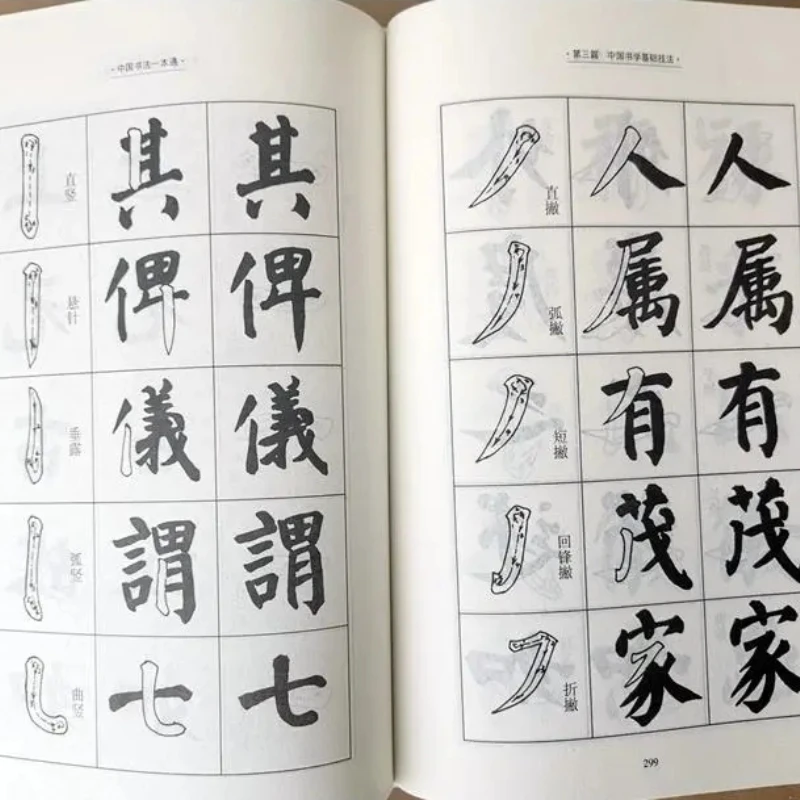 ·中国书法一本通·
直竖 其 其
悬针 俾 俾
垂露 儀 儀
弧竖 謂 謂
曲竖 七 七
·第三篇 中国书学基础技法·
直撇 人 人
弧撇 属 属
短撇 有 有
回锋撇 茂 茂
折撇 家 家
299